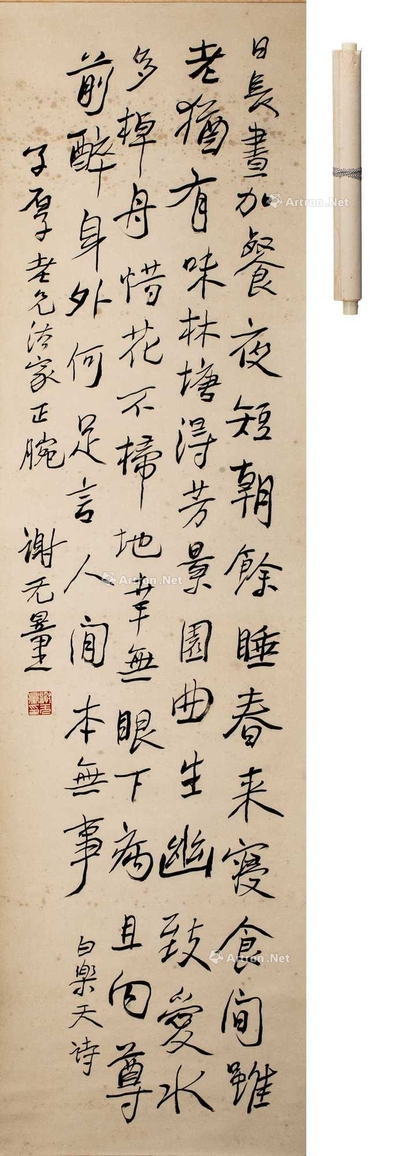 日長晝加餐夜短朝餘睡春来寝食间雖
老猶有味林塘得芳景園曲生幽致愛水
多棹舟惜花不掃地幸無眼下病且向尊
前醉身外何足言人间本無事
白樂天诗
子厚老兄法家正腕
谢无量
Artron.Net
Artron.Net
Artron.Net
Artron.Net